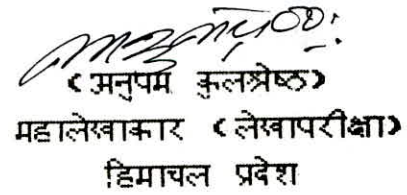 (अनुपम कुलश्रेष्ठ)
महालेखाकार (लेखापरीक्षा)
हिमाचल प्रदेश